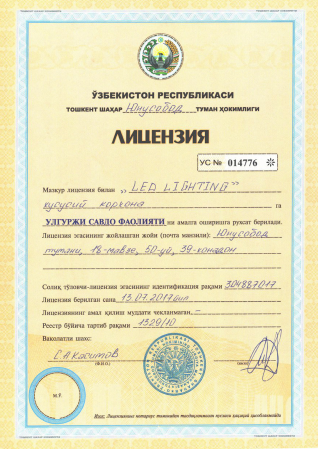 ЎЗБЕКИСТОН РЕСПУБЛИКАСИ
ТОШКЕНТ ШАҲАР Юнусобод ТУМАН ҲОКИМЛИГИ
ЛИЦЕНЗИЯ
УС № 014776
Мазкур лицензия билан „LED LIGHTING”
хусусий корхона га
УЛГУРЖИ САВДО ФАОЛИЯТИ ни амалга оширишга рухсат берилади.
Лицензия эгасининг жойлашган жойи (почта манзили): Юнусобод
тумани, 18-мавзе, 50-уй, 39-хонадон
Солиқ тўловчи-лицензия эгасининг идентификация рақами 304887017
Лицензия берилган сана 13.07.2017
Лицензиянинг амал қилиш муддати чекланмаган. –
Реестр бўйича тартиб рақами 1329/10
Ваколатли шахс:
(Ф.И.О.)
(имзо)
М.Ў.